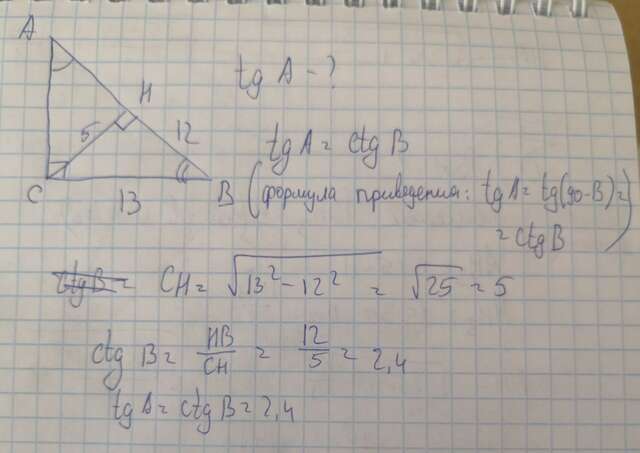 A
H
5
12
C
13
B
tg A - ?
tg A = ctg B
(формула приведения: tg A = tg(90-B) =
= ctg B)
ctg B = CH = √13² - 12² = √25 = 5
ctg B = HB/CH = 12/5 = 2,4
tg A = ctg B = 2,4